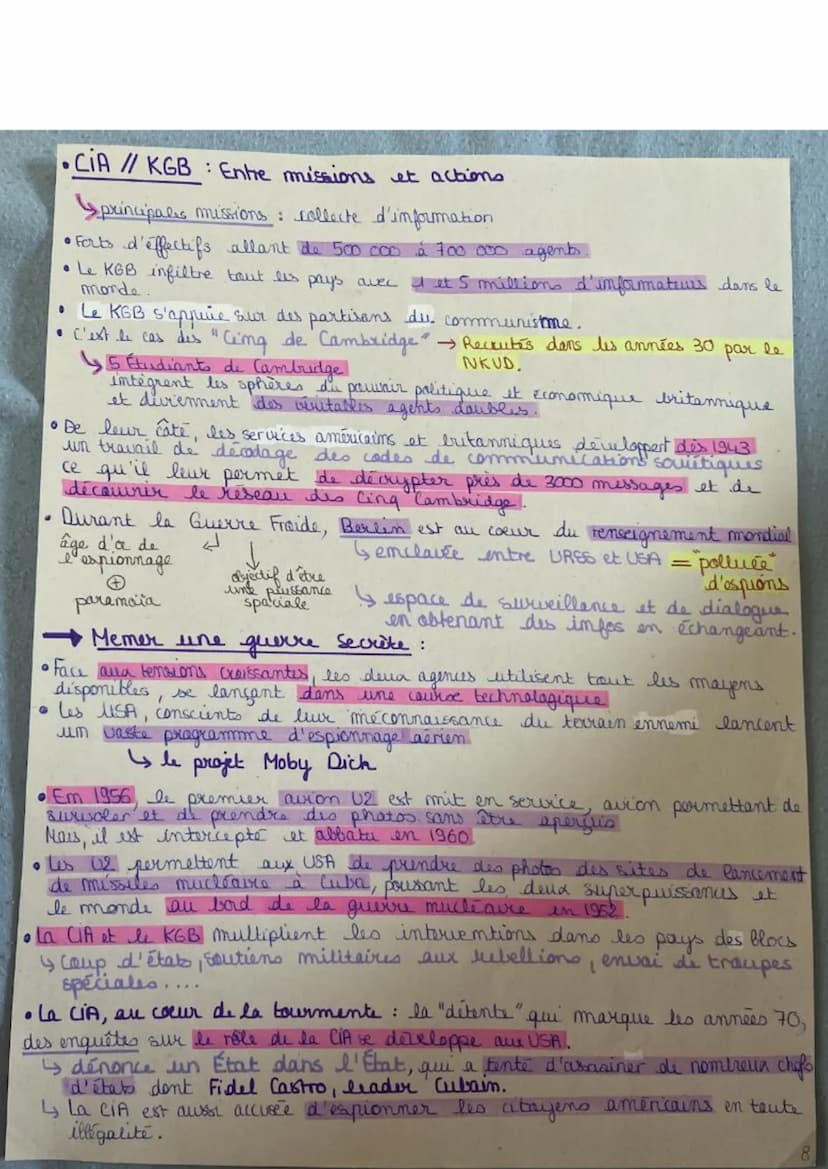 • CIA // KGB : Entre missions et actions
↳ principales missions : collecte d'information
• Forts d'effectifs allant de 500 000 à 700 000 agents.
• Le KGB infiltre tout les pays avec 1 et 5 millions d'informateurs dans le
monde.
• Le KGB s'appuie sur des partisans du communisme.
• C'est le cas des "Cinq de Cambridge" → Recrutés dans les années 30 par le
NKVD.
↳ 5 Étudiants de Cambridge
intègrent les sphères du pouvoir politique et économique britannique
et deviennent des véritables agents doubles.
• De leur côté, les services américains et britanniques développent dès 1943
un travail de décodage des codes de communications soviétiques
ce qu'il leur permet de décrypter près de 3000 messages et de
découvrir le réseau des Cinq Cambridge.
• Durant la Guerre Froide, Berlin est au coeur du renseignement mondial
âge d'or de
l'espionnage
⊕
paranoïa
objectif d'être
une puissance
spatiale
↳ enclavée entre URSS et USA = "polluée"
d'espions
↳ espace de surveillance et de dialogue
en obtenant des infos en échangeant.
→ Mener une guerre secrète :
• Face aux tensions croissantes, les deux agences utilisent tout les moyens
disponibles, se lançant dans une course technologique
• Les USA, conscients de leur méconnaissance du terrain ennemi lancent
un vaste programme d'espionnage aérien
↳ le projet Moby Dich
• En 1956, le premier avion U2 est mit en service, avion permettant de
survoler et de prendre des photos sans être aperçus
Mais, il est intercepté et abbatu en 1960
• Les U2 permettent aux USA de prendre des photos des sites de lancement
de missiles nucléaire à Cuba, poussant les deux superpuissances et
le monde au bord de la guerre nucléaire en 1962.
• La CIA et le KGB multiplient les interventions dans les pays des blocs
↳ Coup d'états, soutiens militaires aux rebellions, envoi de troupes
spéciales....
• La CIA, au cœur de la tourmente : la "détente" qui marque les années 70,
des enquêtes sur le rôle de la CIA se développe aux USA.
↳ dénonce un État dans l'État, qui a tenté d'assasiner de nombreux chefs
d'états dont Fidel Castro, leader Cubain.
↳ La CIA est aussi accusée d'espionner les citoyens américains en toute
illégalité.
8